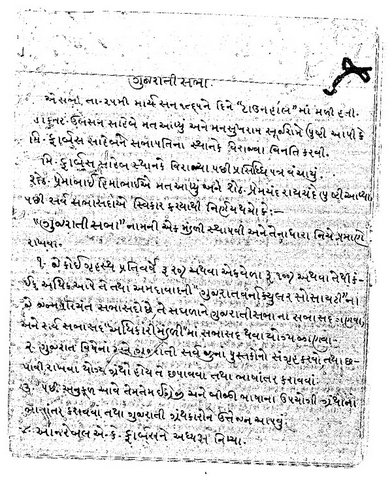 ગુજરાતી સભા.
એ સભા તા-૨૫મી માર્ચ સન ૧૮૬૫ને દિને "ટાઉનહૉલ" માં મળી હતી.
ડાકૂતર ઉલસન સાહેબે મત આપ્યું અને મનસુખરામ સૂર્યરામે પુષ્ટી આપી કે
મિ- ફાર્બસ સાહેબને સભાપતિના સ્થાનકે વિરાજવા વિનતિ કરવી.
મિ. ફાર્બસ સાહેબ સ્થાનકે વિરાજ્યા પછી પ્રસિધ્ધિપત્ર વંચાયું.
પ્રેમાભાઈ હિમાભાઈએ મત આપ્યું અને શેઠ પ્રેમચંદ રાયચંદે પુષ્ટી આપ્યા
પછી સર્વ સભાસદોએ સ્વિકાર કર્યાથી નિર્ણય થયો કે:—
"ગુજરાતી સભા" નામની એક મંડળી સ્થાપવી અને તેના ધારા નિચે પ્રમાણે
રાખવા.
૧. જે કોઈ ગૃહસ્થ પ્રતિવર્ષે રૂ અથવા એકવેળા રૂ અથવા તેથી કં-
ઈ અધિક આપે તે તથા અમદાવાદની "ગુજરાત વર્નાક્યુલર સોસાયટી"ના
જે જન્મપર્યંત સભાસદો છે તે સઘળાને ગુજરાતી સભાના સભાસદ ગણવા,
અને સર્વ સભાસદ "અધિકારી મંડળી" માં સભાસદ થવા યોગ્ય જાણવા-
૨. ગુજરાત વિષેનાં કે ગુજરાતી સર્વ જુના પુસ્તકોનો સંગ્રહ કરવો તથા છ-
પાવી રાખવા યોગ્ય ગ્રંથો હોય તે છપાવવા તથા ભાષાન્તર કરાવવાં
૩. પછી અનુકૂળ આવે તેમ તેમ ઈંગ્રેજી અને બીજી ભાષાના ઉપયોગી ગ્રંથોનાં
ભાષાન્તર કરાવવા તથા ગુજરાતી ગ્રંથકારોને ઉત્તેજન આપવું.
૪. ઑનરેબલ એ-ક-ફાર્બસને અધ્યક્ષ નિમ્યા.